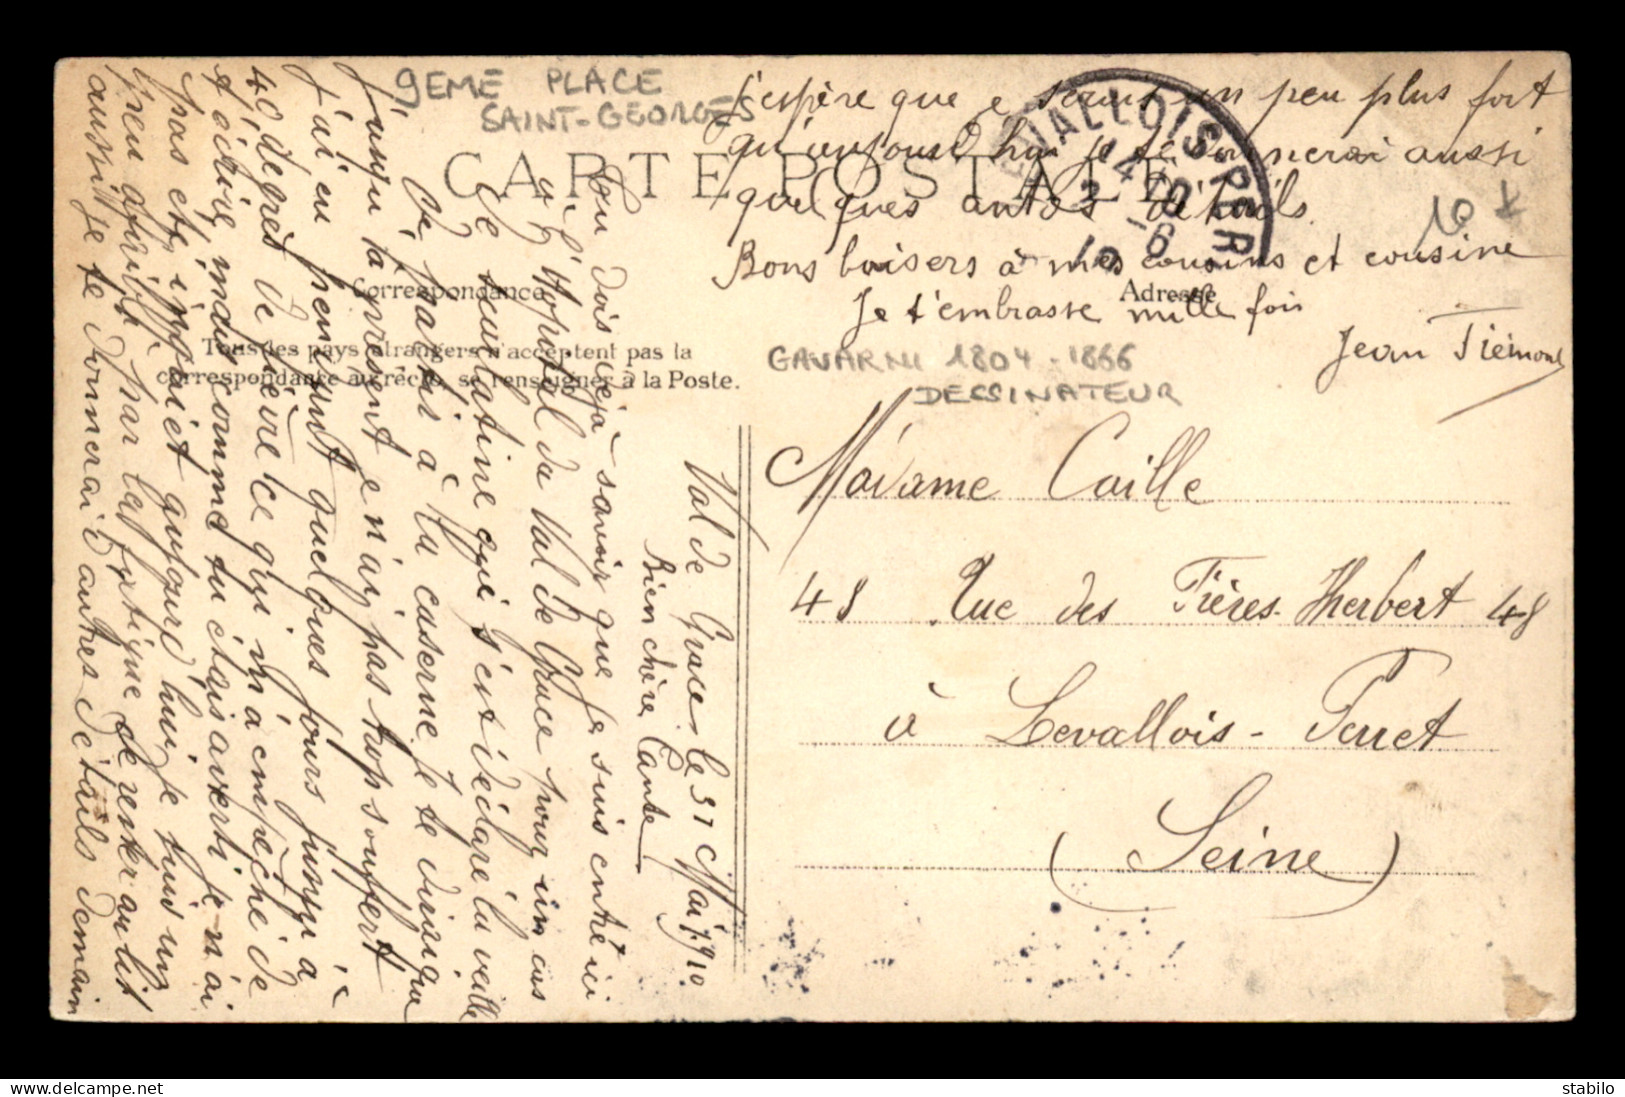 9EME PLACE
SAINT-GEORGES
CARTE POSTALE
Correspondance
Adresse
Tous les pays étrangers n'acceptent pas la
correspondance au recto, se renseigner à la Poste.
Val de Grâce, le 31 Mai 1910
Bien chère Tante
Tu dois déjà savoir que je suis entré ici
à l'Hôpital du Val de Grâce pour un cas
de scarlatine qui s'est déclaré la veille
de partir à la caserne. Je te dirai que
jusqu'à présent je n'ai pas trop souffert
j'ai eu pendant quelques jours jusqu'à
40 degrés de fièvre ce qui m'a empêché de
t'écrire, mais comme tu étais avertie je n'ai
pas été inquiet aujourd'hui je suis un
peu affaibli par la fatigue de rester au lit
aussi je te donnerai d'autres détails demain
j'espère que je serais un peu plus fort
qu'aujourd'hui je te donnerai aussi
quelques autres détails.
Bons baisers à mes cousins et cousine
Je t'embrasse mille fois
Jean Tiémont
LEVALLOIS-PERR
10
GAVARNI 1804-1866
DESSINATEUR
Madame Caille
48 Rue des Frères Herbert 48
à Levallois-Perret
(Seine)
stabilo